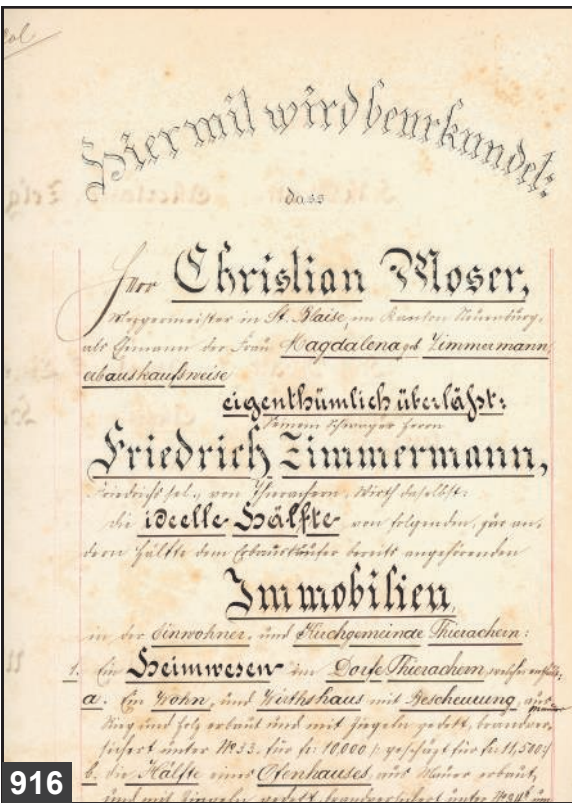 Hiermit wird beurkundet:
dass
Herr Christian Moser,
Metzgermeister in St. Blaise, im Kanton Neuenburg,
als Ehemann der Frau Magdalena geb. Zimmermann,
erbauskaufsweise
eigenthümlich überläßt:
Seinem Schwager Herrn
Friedrich Zimmermann,
Friedrichs sel., von Thierachern, Wirth daselbst:
die ideelle Hälfte von folgenden, zur an-
dern Hälfte dem Erbauskäufer bereits angehörenden
Immobilien,
in der Einwohner- und Kirchgemeinde Thierachern:
1. Ein Heimwesen im Dorfe Thierachern, welches enthält:
a. Ein Wohn- und Wirthshaus mit Bescheuung, aus
Rieg und Holz erbaut und mit Ziegeln gedekt, brandver-
sichert unter No 33. für fr: 10,000 /: geschäzt für fr: 11,500:/
b. die Hälfte eines Ofenhauses, aus Mauer erbaut,
und mit Ziegeln gedekt, brandversichert unter
916